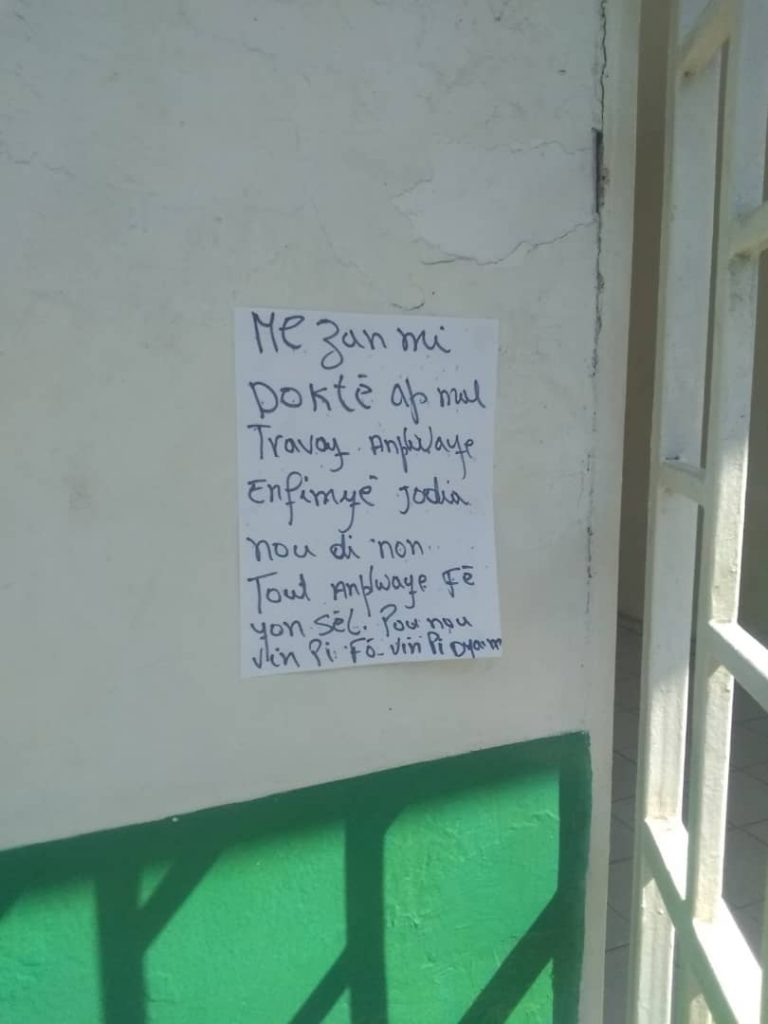 Me zanmi
Doktē ap mal
Travay Anplwaye
Enfimyē jodia
nou di non..
Tout Anplwaye Fē
yon sēl. Pou nou
vin Pi Fó- vin Pi Dyanm